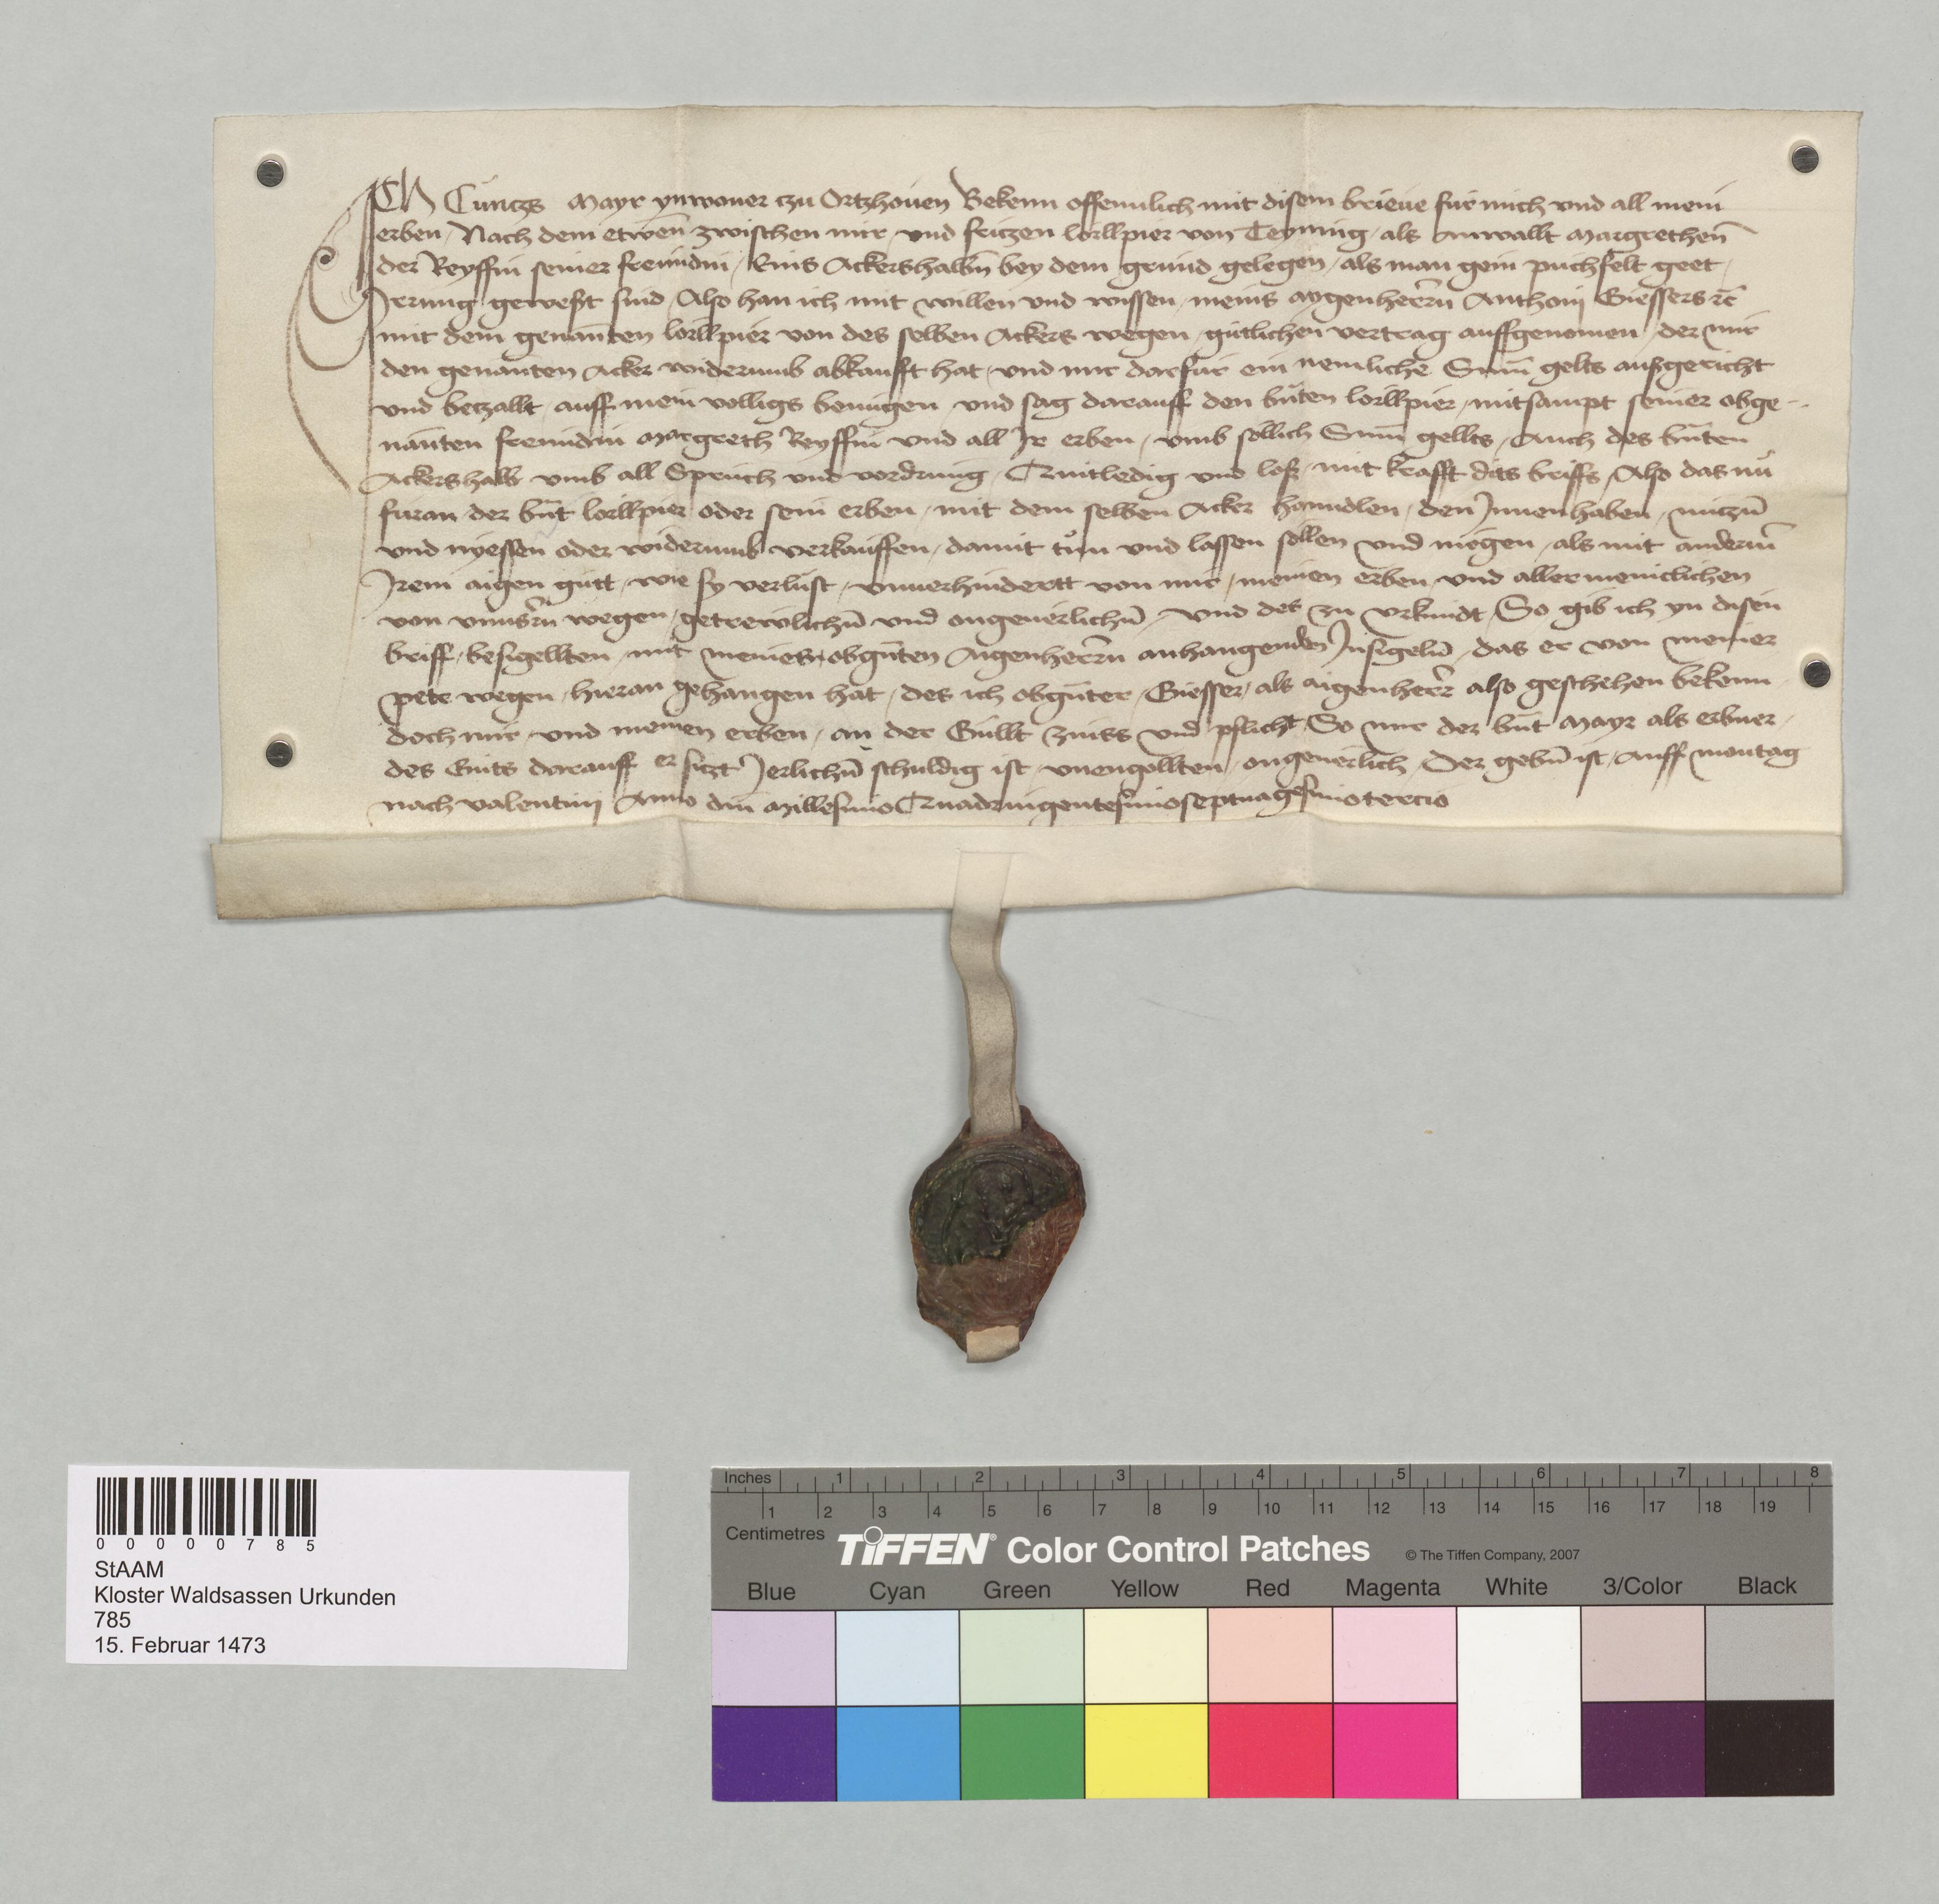 Ich Cuntzs Mayr ynwoner tzu Ortzhouen Bekenn offennlich mit disem brieue für mich vnd all mein
erben / Nach dem etwen̄ zwischen mir vnd fritzen lörllpier von Teyning / als Anwallt Margrethen̄
der Reyffin seiner freundin / Eins Ackershalbn̄ bey dem grund gelegen / als man gein puchfelt geet /
Irrung gewest sind / Also han ich mit willen vnd wissen / meins aygenherrn Anthonij Giessers ꝛc̄
mit dem genan̄ten lörllpier von des selben Ackers wegen / gütlichen vertrag auffgenomen / der mir
den genanten Acker widerumb abkaufft hat / vnd mir darfür ein nemliche Sum̄ gelts außgericht
vnd betzallt / auff mein volligs benügen / vnd sag darauff den bn̄ten lörllpier / mitsampt seiner obge-
nan̄ten freundin Margreth Reyffin vnd all Ir erben / vmb söllich Sum̄ gellts / Auch des bn̄ten
Ackershalb vmb all Sprüch vnd vordrung / Quitledig vnd loß / mit krafft dits briffs / Also das nů
füran der bn̄t lörllpier oder sein erben / mit dem selben Acker hanndlen / den Innenhaben / nutzn̄
vnd nyessen oder widerumb verkauffen / damit tůn vnd lassen söllen vnd mögen / als mit anderm̄
Irem aigen gütt / wie sy verlüst / vnuerhindertt von mir / meinen erben vnd allermeniclichen
von vnnsern wegen / getrewlichn̄ vnd ongeuerlichn̄ / Vnd des zu vrkundt / So gib ich yn disen
briff / besigellten / mit meines obgn̄ten Aigenherrn anhangenden Insigeln̄ / das er von meiner
pete wegen / hieran gehangen hat / des ich obgn̄ter / Giesser / als aigenherr also geschehen bekenn
doch mir / vnd meinen erben / an der Güllt Zinss vnd pflicht / So mir der bn̄t Mayr als erbner /
des Guts darauff er sitzt Ierlichn̄ schuldig ist / vnengollten / ongeuerlich / Der gebn̄ ist / Auff montag
nach valentinj Anno dn̄i Millesimo Quadringentesimoseptuagesimotercio
0 0 0 0 0 7 8 5
StAAM
Kloster Waldsassen Urkunden
785
15. Februar 1473
Inches 1 2 3 4 5 6 7 8
1 2 3 4 5 6 7 8 9 10 11 12 13 14 15 16 17 18 19
Centimetres
TIFFEN® Color Control Patches © The Tiffen Company, 2007
Blue Cyan Green Yellow Red Magenta White 3/Color Black